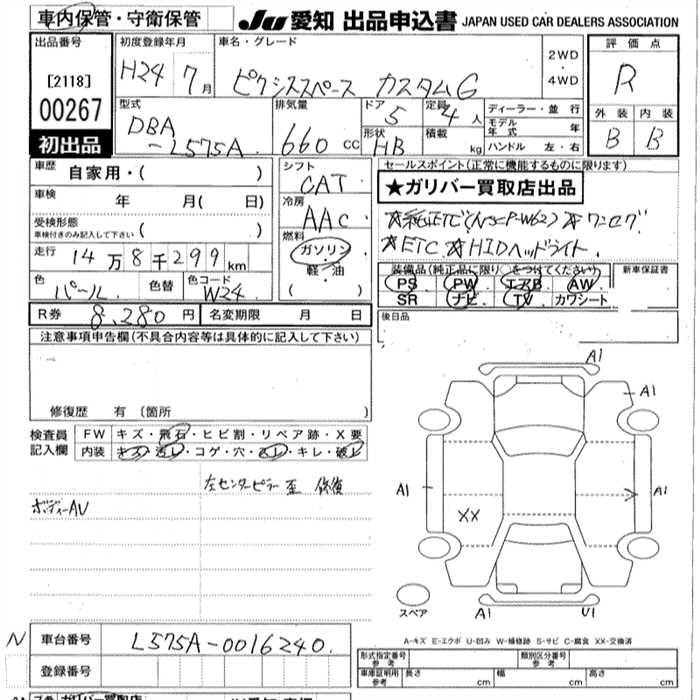 車内保管・守衛保管
JU 愛知 出品申込書 JAPAN USED CAR DEALERS ASSOCIATION
出品番号
[2118]
00267
初出品
初度登録年月
H24 7月
車名・グレード
ピクシススペース カスタムG
2WD
・
4WD
評価点
R
外装 内装
B B
型式
DBA
-L575A
排気量
660 cc
ドア
5
定員
4人
形状
HB
積載
kg
ディーラー・並行
モデル年式 年
ハンドル 左・右
車歴
自家用・( )
車検 年 月( 日)
受検形態
車検付きのみ記入して下さい ( )
走行 14万8千299km
色 パール 色替 色コード W24
R券 8,280円 名変期限 月 日
シフト
CAT
冷房
AAC
燃料
ガソリン
軽・油
( )
セールスポイント(正常に機能するものに限ります)
★ガリバー買取店出品
☆ワンセグ
☆ETC ☆HIDヘッドライト
装備品(純正品に限り○をつけてください)
PS PW エアB AW
SR ナビ TV カワシート
新車保証書
後日品
注意事項申告欄(不具合内容等は具体的に記入して下さい)
修復歴 有 〔箇所 〕
検査員記入欄
FW キズ・飛石・ヒビ割・リペア跡・X要
内装 キズ・汚レ・コゲ・穴・スレ・キレ・破レ
左センターピラー 歪 修復
ボディーAU
A1
A1
A1
A1
XX
A1
U1
スペア
A-キズ E-エクボ U-凹み W-補修跡 S-サビ C-腐食 XX-交換済
N 車台番号 L575A-0016240
登録番号
形式指定番号 参考
類別区分番号 参考
車庫証明用 参考 長さ cm 幅 cm 高さ cm
ガリバー買取店